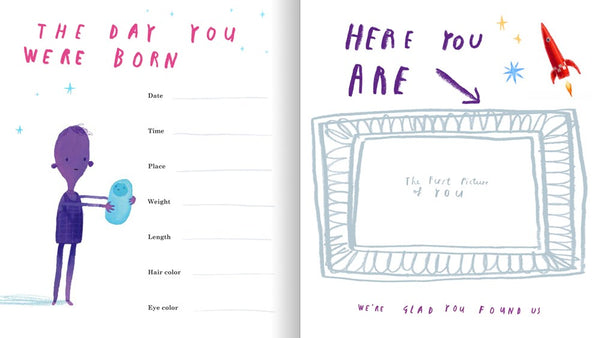 THE DAY YOU
WERE BORN
Date
Time
Place
Weight
Length
Hair color
Eye color
HERE YOU
ARE
The First Picture
of YOU
WE'RE GLAD YOU FOUND US